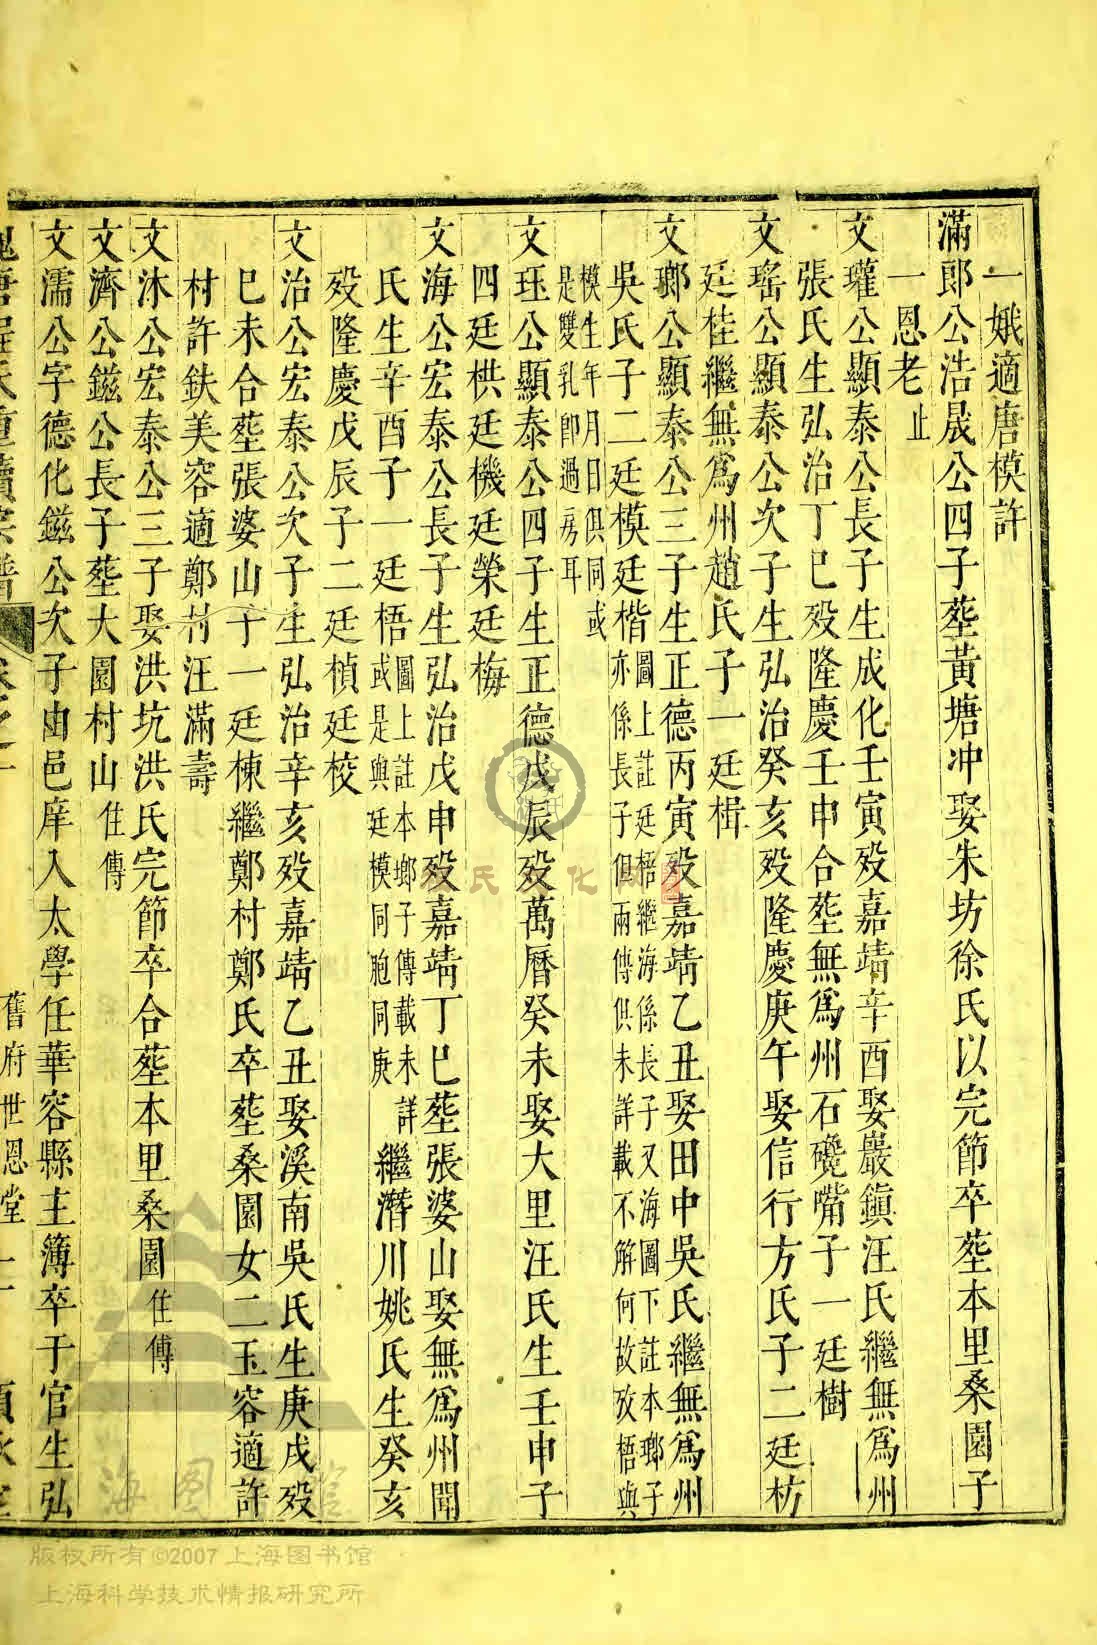 一娥適唐模許
滿郎公浩晟公四子塟黃塘冲娶朱坊徐氏以完節卒塟本里桑園子
一恩老止
文瓘公顯泰公長子生成化壬寅殁嘉靖辛酉娶巖鎮汪氏繼無爲州
張氏生弘治丁巳殁隆慶壬申合塟無爲州石磯嘴子一廷樹
文瑤公顯泰公次子生弘治癸亥殁隆慶庚午娶信行方氏子二廷枋
廷桂繼無爲州趙氏子一廷楫
文瑯公顯泰公三子生正德丙寅殁嘉靖乙丑娶田中吳氏繼無爲州
吳氏子二廷模廷楷圖上註廷梧繼海係長子又海圖下註本瑯子亦係長子但兩傳俱未詳載不解何故攷梧與
模生年月日俱同或是雙乳卽過房耳
文珏公顯泰公四子生正德戊辰殁萬曆癸未娶大里汪氏生壬申子
四廷栱廷機廷榮廷梅
文海公宏泰公長子生弘治戊申殁嘉靖丁巳塟張婆山娶無爲州聞
氏生辛酉子一廷梧圖上註本瑯子傳載未詳或是與廷模同胞同庚繼潛川姚氏生癸亥
殁隆慶戊辰子二廷楨廷校
文治公宏泰公次子生弘治辛亥殁嘉靖乙丑娶溪南吳氏生庚戌殁
巳未合塟張婆山子一廷棟繼鄭村鄭氏卒塟桑園女二玉容適許
村許鈇美容適鄭村汪滿壽
文沐公宏泰公三子娶洪坑洪氏完節卒合塟本里桑園住傳
文濟公鎡公長子塟大園村山住傳
文濡公字德化鎡公次子由邑庠入太學任華容縣主簿卒于官生弘
舊府世恩堂
版权所有©2007上海图书馆
上海科学技术情报研究所